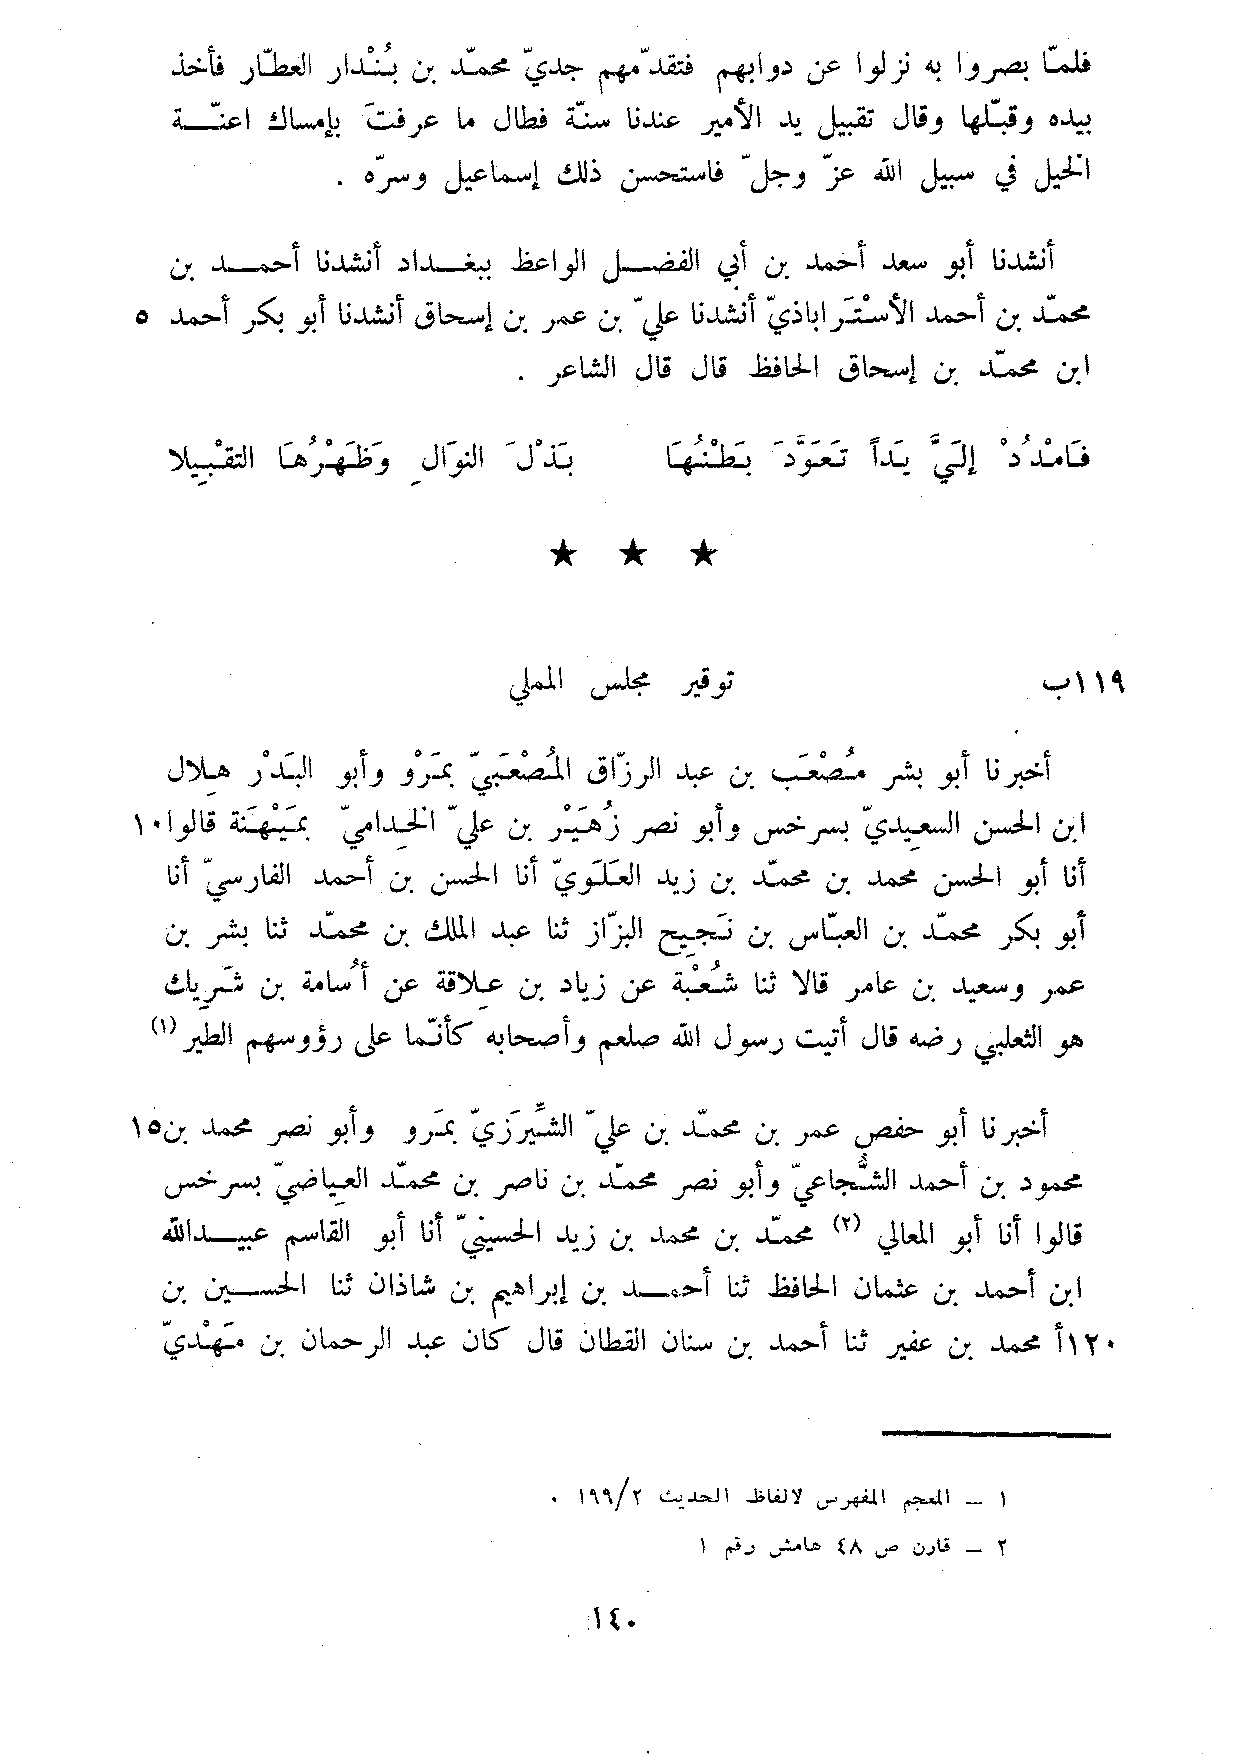 فلمّا بصروا به نزلوا عن دوابهم فتقدّمهم جدّيّ محمّد بن بُنْدار العطّار فأخذ
بيده وقبّلها وقال تقبيل يد الأمير عندنا سنّة فطال ما عرفتَ بإمساك اعنّة
الخيل في سبيل الله عزّ وجلّ فاستحسن ذلك إسماعيل وسرّه .
أنشدنا أبو سعد أحمد بن أبي الفضل الواعظ ببغداد أنشدنا أحمد بن
محمّد بن أحمد الأسْتَراباذيّ أنشدنا عليّ بن عمر بن إسحاق أنشدنا أبو بكر أحمد ٥
ابن محمّد بن إسحاق الحافظ قال قال الشاعر .
فَامْدُدْ إلَيَّ يَداً تَعَوَّدَ بَطْنُهَا بَذْلَ النوَالِ وَظَهْرُهَا التقْبِيلا
★ ★ ★
١١٩ب توقير مجلس المملي
أخبرنا أبو بشر مُصْعَب بن عبد الرزّاق المُصْعَبيّ بمَرْو وأبو البَدْر هِلال
ابن الحسن السعِيديّ بسرخس وأبو نصر زُهَيْر بن عليّ الخِداميّ بمَيْهَنة قالوا ١٠
أنا أبو الحسن محمد بن محمّد بن زيد العَلَويّ أنا الحسن بن أحمد الفارسيّ أنا
أبو بكر محمّد بن العبّاس بن نَجِيح البزّاز ثنا عبد الملك بن محمّد ثنا بشر بن
عمر وسعيد بن عامر قالا ثنا شُعْبة عن زياد بن عِلاقة عن أُسامة بن شَرِيك
هو الثعلبي رضه قال أتيت رسول الله صلعم وأصحابه كأنّما على رؤوسهم الطير (١)
أخبرنا أبو حفص عمر بن محمّد بن عليّ الشِّيرَزيّ بمَرو وأبو نصر محمد بن ١٥
محمود بن أحمد الشُّجاعيّ وأبو نصر محمّد بن ناصر بن محمّد العِياضيّ بسرخس
قالوا أنا أبو المعالي (٢) محمّد بن محمد بن زيد الحسينيّ أنا أبو القاسم عبيدالله
ابن أحمد بن عثمان الحافظ ثنا أحمد بن إبراهيم بن شاذان ثنا الحسين بن
١٢٠أ محمد بن عفير ثنا أحمد بن سنان القطان قال كان عبد الرحمان بن مَهْديّ
١ – المعجم المفهرس لالفاظ الحديث ١٩٩/٢ .
٢ – قارن ص ٤٨ هامش رقم ١
١٤٠